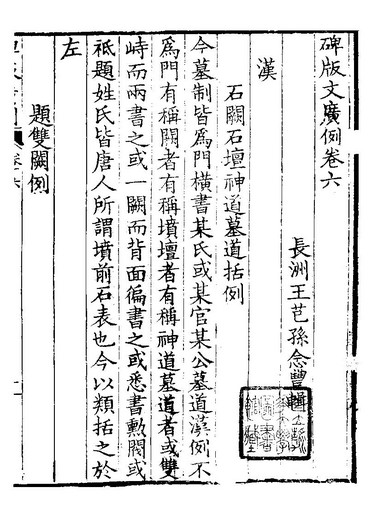 碑版文廣例卷六
長洲王芑孫念豐輯
漢
石闕石壇神道墓道括例
今墓制皆爲門橫書某氏或某官某公墓道漢例不
爲門有稱闕者有稱墳壇者有稱神道墓道者或雙
峙而兩書之或一闕而背面徧書之或悉書勲閥或
祗題姓氏皆唐人所謂墳前石表也今以類括之於
左
題雙闕例